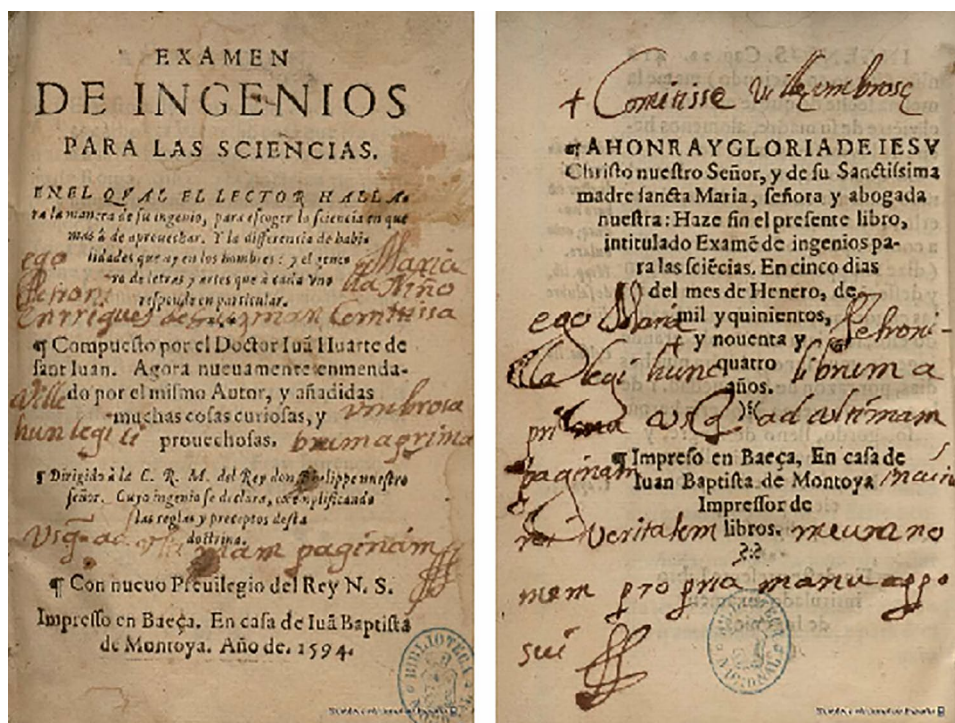 EXAMEN
DE INGENIOS
PARA LAS SCIENCIAS.
EN EL QVAL EL LECTOR HALLA-
ra la manera de su ingenio, para escoger la sciencia en que
mas à de aprouechar. Y la differencia de habi
lidades que ay en los hombres: y el genero
ego Maria
ro de letras y artes que à cada vno
Petroni lla Niño
responde en particular.
Enrriques de Guzman Comitissa
¶ Compuesto por el Doctor Iuã Huarte de
sant Iuan. Agora nueuamente enmenda-
do por el mismo Autor, y añadidas
Ville vmbrosa
muchas cosas curiosas, y
hun legi li brum a prima
prouechosas.
¶ Dirigido à la C. R. M. del Rey don Philippe nuestro
señor. Cuyo ingenio se declara, exemplificando
las reglas y preceptos desta
doctrina.
vsq ad vltimam paginam
¶ Con nueuo Preuilegio del Rey N. S.
Impresso en Baeça. En casa de Iuã Baptista
de Montoya. Año de. 1594.
BIBLIOTECA
+ Comitisse Ville vmbrose
¶ A HONRA Y GLORIA DE IESV
Christo nuestro Señor, y de su Sanctissima
madre sancta Maria, señora y abogada
nuestra: Haze fin el presente libro,
intitulado Examẽ de ingenios pa-
ra las sciẽcias. En cinco dias
del mes de Henero, de
mil y quinientos,
ego Maria Petroni-
y nouenta y
quatro
lla legi hunc librum a
años.
prima vsq ad vltimam
¶ Impreso en Baeça, En casa de
paginam
Iuan Baptista de Montoya
Impressor de
libros.
veritatem meum no
men propria manu appo
sui
NACIONAL